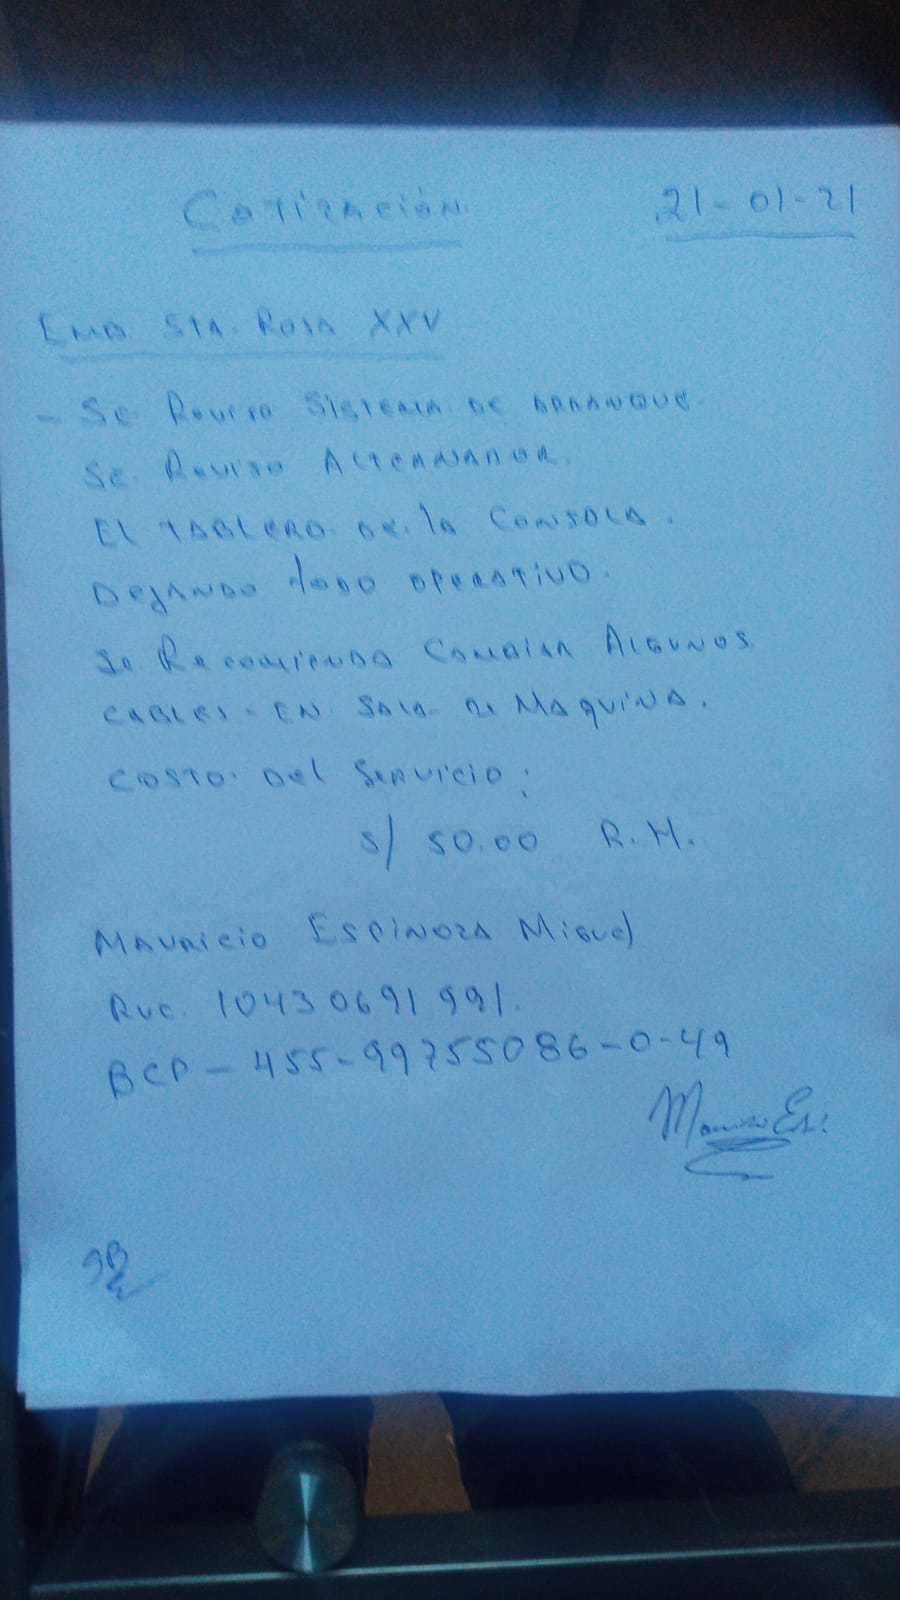 COTIZACIÓN 21-01-21
EMB. STA. ROSA XXV
- SE REVISO SISTEMA DE ARRANQUE.
SE REVISO ALTERNADOR.
EL TABLERO DE LA CONSOLA.
DEJANDO TODO OPERATIVO.
SE RECOMIENDA CAMBIAR ALGUNOS
CABLES - EN SALA DE MAQUINA.
COSTO DEL SERVICIO:
S/ 50.00 R.H.
MAURICIO ESPINOZA MIGUEL
RUC. 10430691991.
BCP - 455-99755086-0-49